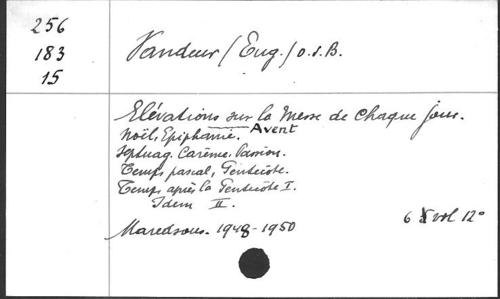 256
183
15
Vandeur (Eug.) O.S.B.
Elévations sur la Messe de chaque jour.
Avent
Noël, Epiphanie.
Septuag. Carême. Passion.
Temps pascal, Pentecôte.
Temps après la Pentecôte I.
Idem II.
Maredsous. 1948-1950
6 vol 12°